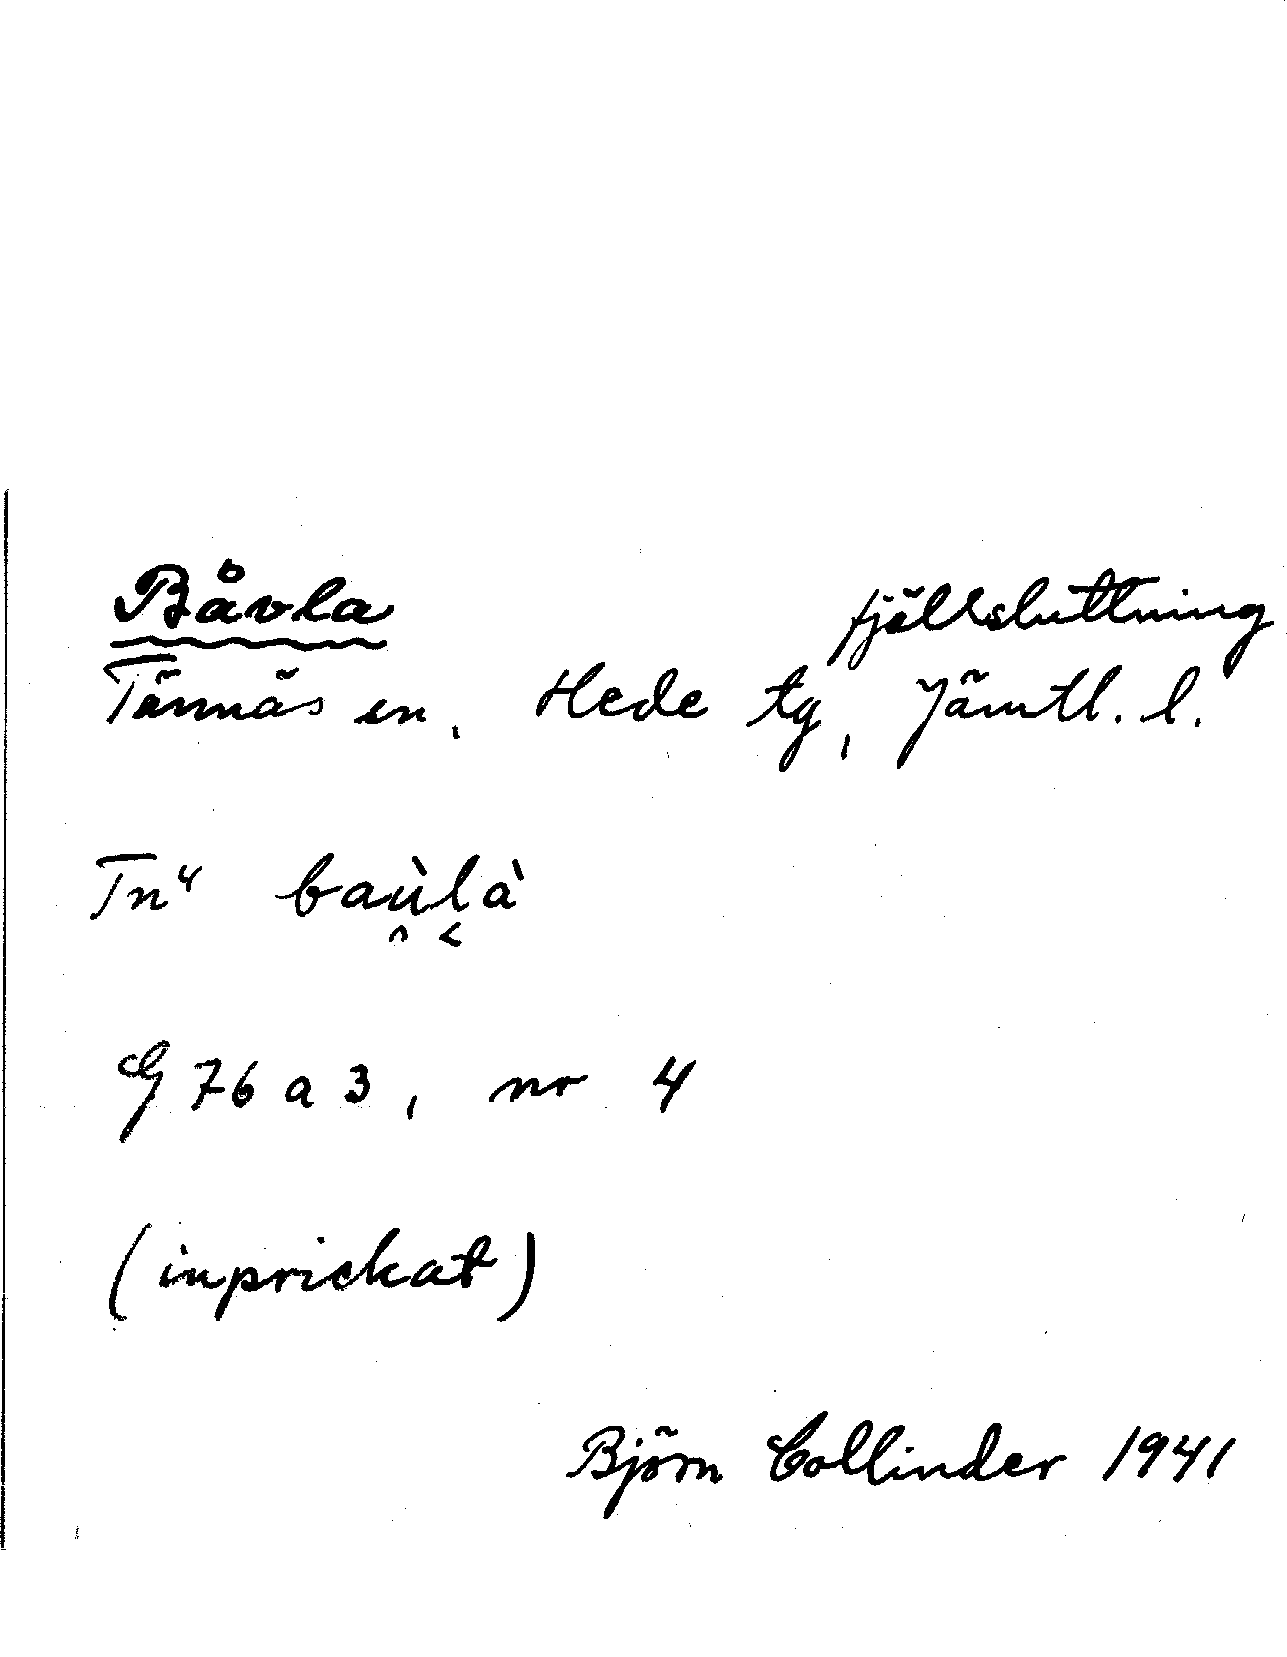 Båvla fjällsluttning
Tännäs sn, Hede tg, Jämtl. l.
Tn⁴ baù̯l̬à
G 76 a 3, nr 4
(inprickat)
Björn Collinder 1941